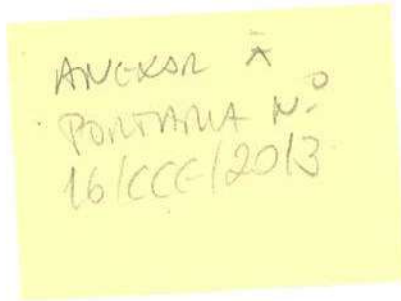 ANEXAR À
PORTARIA Nº
16/CCE/2013